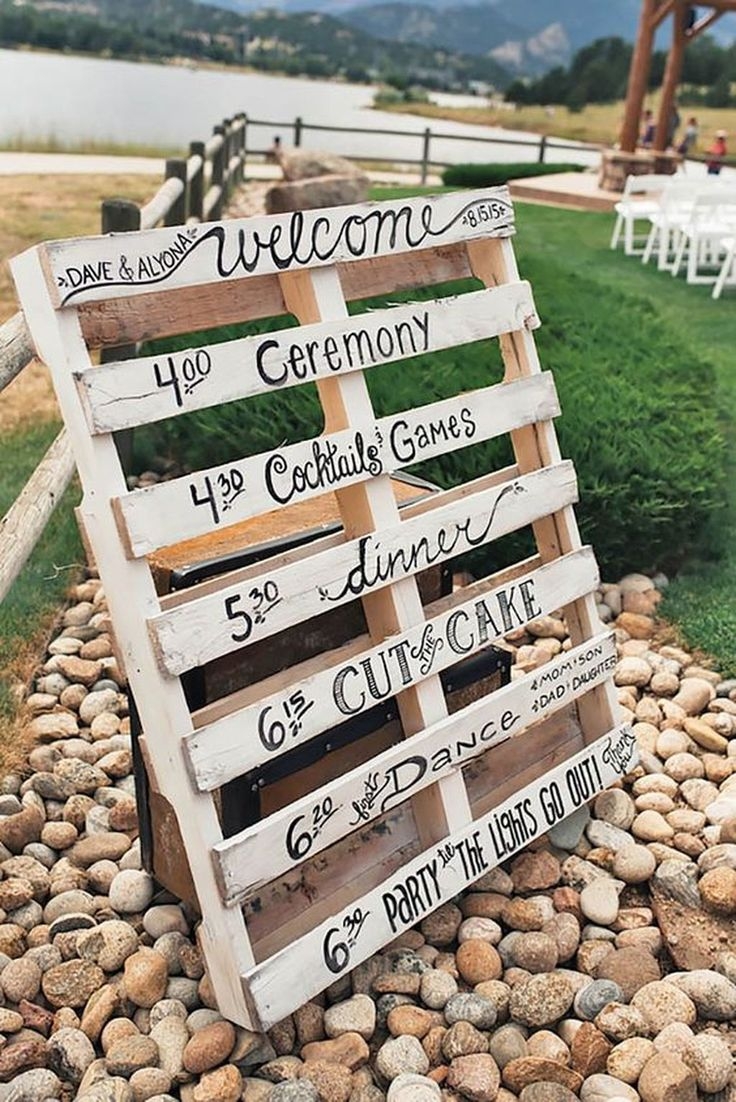 DAVE & ALYONA welcome 8.15.15
4:00 Ceremony
4:30 Cocktails & Games
5:30 dinner
6:15 CUT the CAKE
6:20 first Dance MOM & SON DAD & DAUGHTER
6:30 PARTY 'til THE LIGHTS GO OUT! Thank You